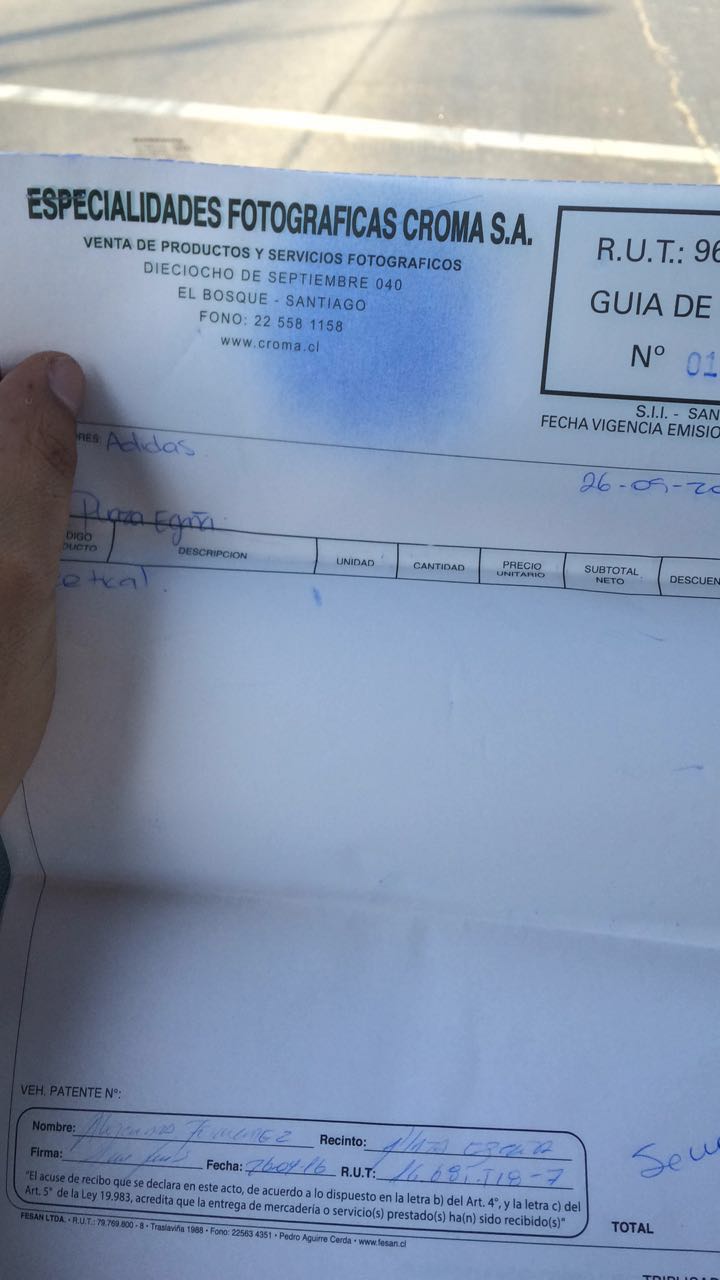 ESPECIALIDADES FOTOGRAFICAS CROMA S.A.
VENTA DE PRODUCTOS Y SERVICIOS FOTOGRAFICOS
DIECIOCHO DE SEPTIEMBRE 040
EL BOSQUE - SANTIAGO
FONO: 22 558 1158
www.croma.cl
R.U.T.: 96
GUIA DE
Nº 01
S.I.I. - SAN
FECHA VIGENCIA EMISIO
RES: Adidas
26-09-20
Plaza Egaña
DIGO
DUCTO
DESCRIPCION
UNIDAD
CANTIDAD
PRECIO
UNITARIO
SUBTOTAL
NETO
DESCUEN
VEH. PATENTE Nº:
Nombre: Recinto: Plaza Egaña
Firma: Fecha: R.U.T:
"El acuse de recibo que se declara en este acto, de acuerdo a lo dispuesto en la letra b) del Art. 4°, y la letra c) del
Art. 5° de la Ley 19.983, acredita que la entrega de mercadería o servicio(s) prestado(s) ha(n) sido recibido(s)"
TOTAL
FESAN LTDA. • R.U.T.: 79.769.800 - 8 • Traslaviña 1988 • Fono: 22563 4351 • Pedro Aguirre Cerda • www.fesan.cl